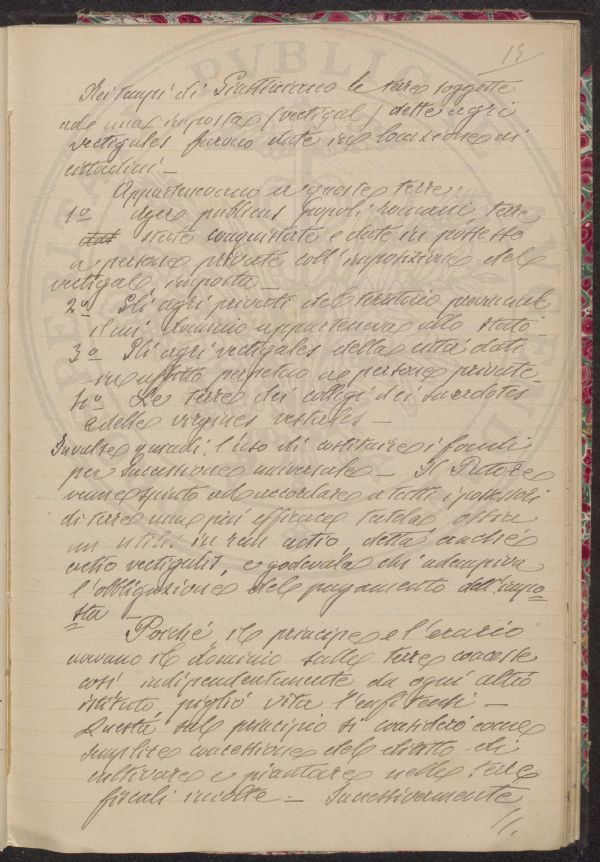 19
Nei tempi di Giustiniano le terre soggette
ad una imposta (vectigal) dette agri
vectigales furono date in locazione ai
cittadini –
Appartenevano a queste terre:
1º ager publicus populi romani, terre
dat state conquistate e date in possesso
a persone private coll'imposizione del
vectigal, imposta –
2º Gli agri privati del territorio provinciale
il cui dominio apparteneva allo stato –
3º Gli agri vectigales della città dati
in affitto perpetuo a persone private –
4º Le terre dei collegi dei sacerdoti
e delle virgines vestales –
Invalse quindi l'uso di costituire i fondi
per successione universale – Il Pretore
venne spinto ad accordare a tutti i possessori
di terre una più efficace tutela ossia
un utilis in rem actio detta anche
actio vectigalis, e godevala chi adempiva
l'obbligazione del pagamento dell'impo-
sta –
Poiché il principe e l'erario
avevano il dominio sulle terre concesse
così indipendentemente da ogni altro
istituto pigliò vita l'enfiteusi –
Questa sul principio si considerò come
semplice concessione del diritto di
coltivare e piantare nelle terre
fiscali incolte – Successivamente